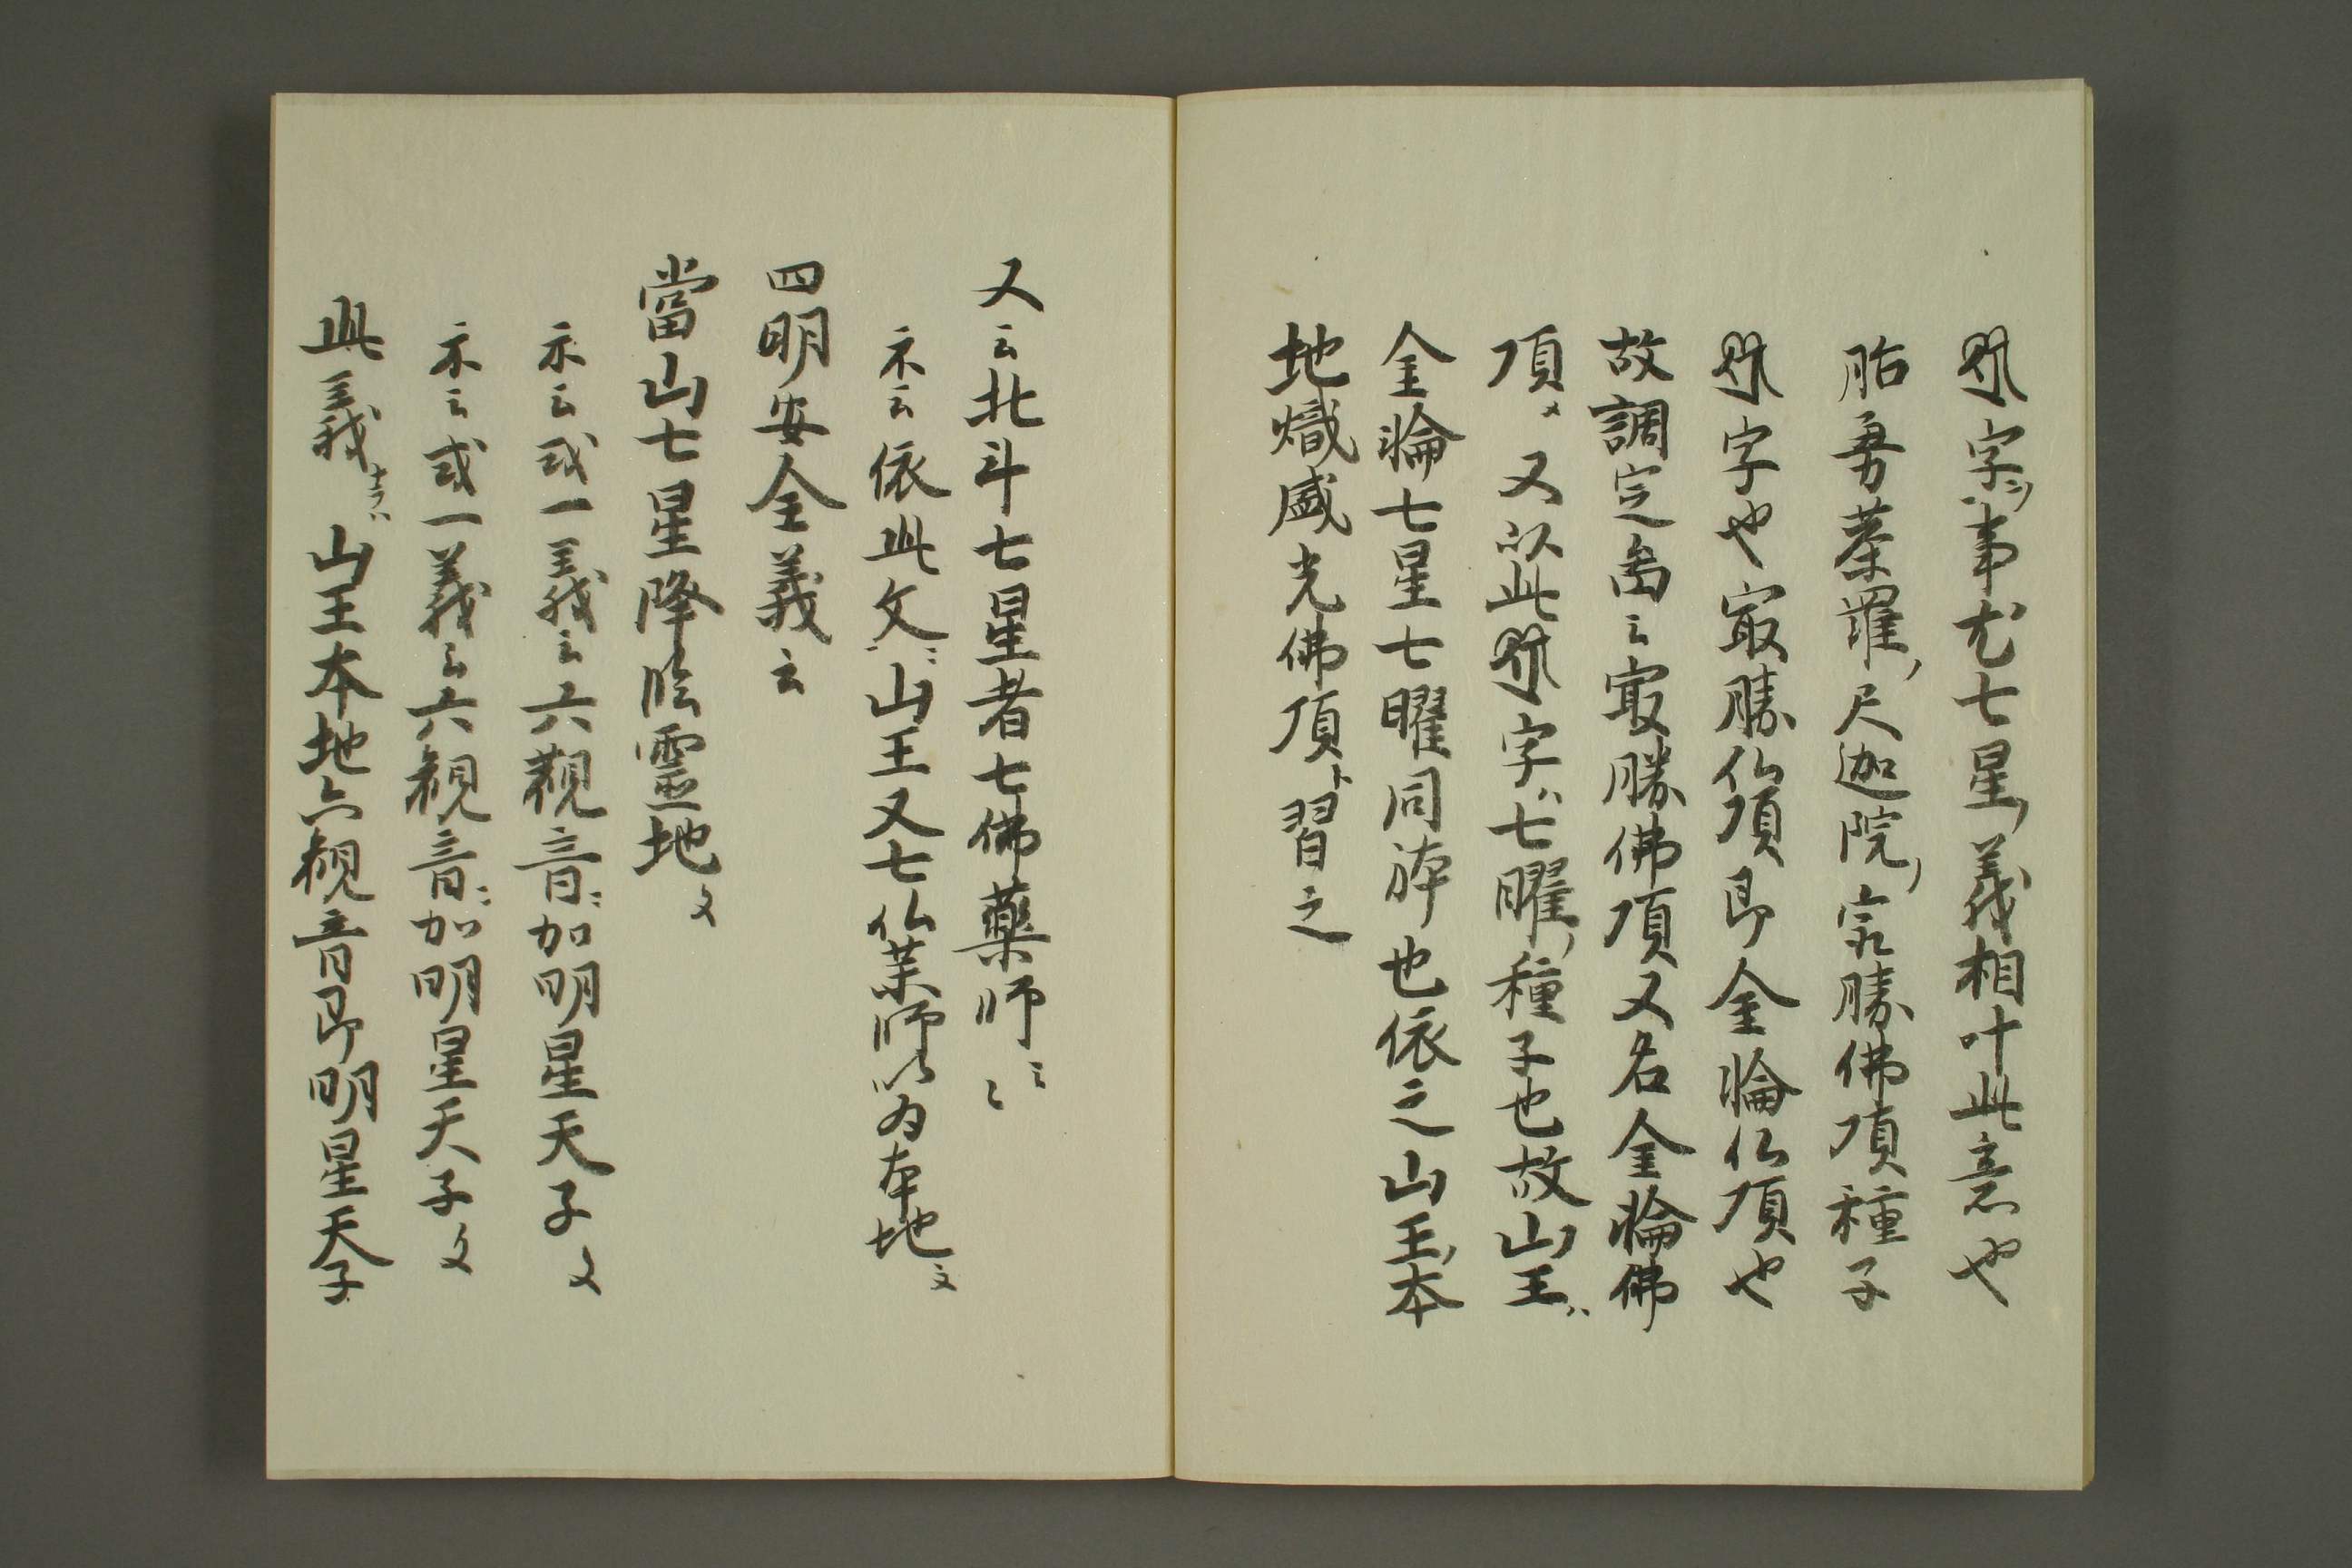 字ハ事尤七星ノ義相叶此意也
胎曼荼羅ノ尺迦院ノ㝡勝佛頂種子
字也㝡勝仏頂即金輪仏頂也
故調定畣云㝡勝佛頂又名金輪佛
頂文又以此 字ハ七曜ノ種子也故山王ハ
金輪七星七曜同躰也依之山王ノ本
地熾盛光佛頂ト習之
又云北斗七星者七佛藥師云云
示云依此文ニ山王又七仏薬師以為本地文
四明安全義云
當山七星降臨靈地文
示云或一義云六觀音ニ加明星天子文
示云或一義云六観音ニ加明星天子文
此義ナラハ山王本地六観音即明星天子